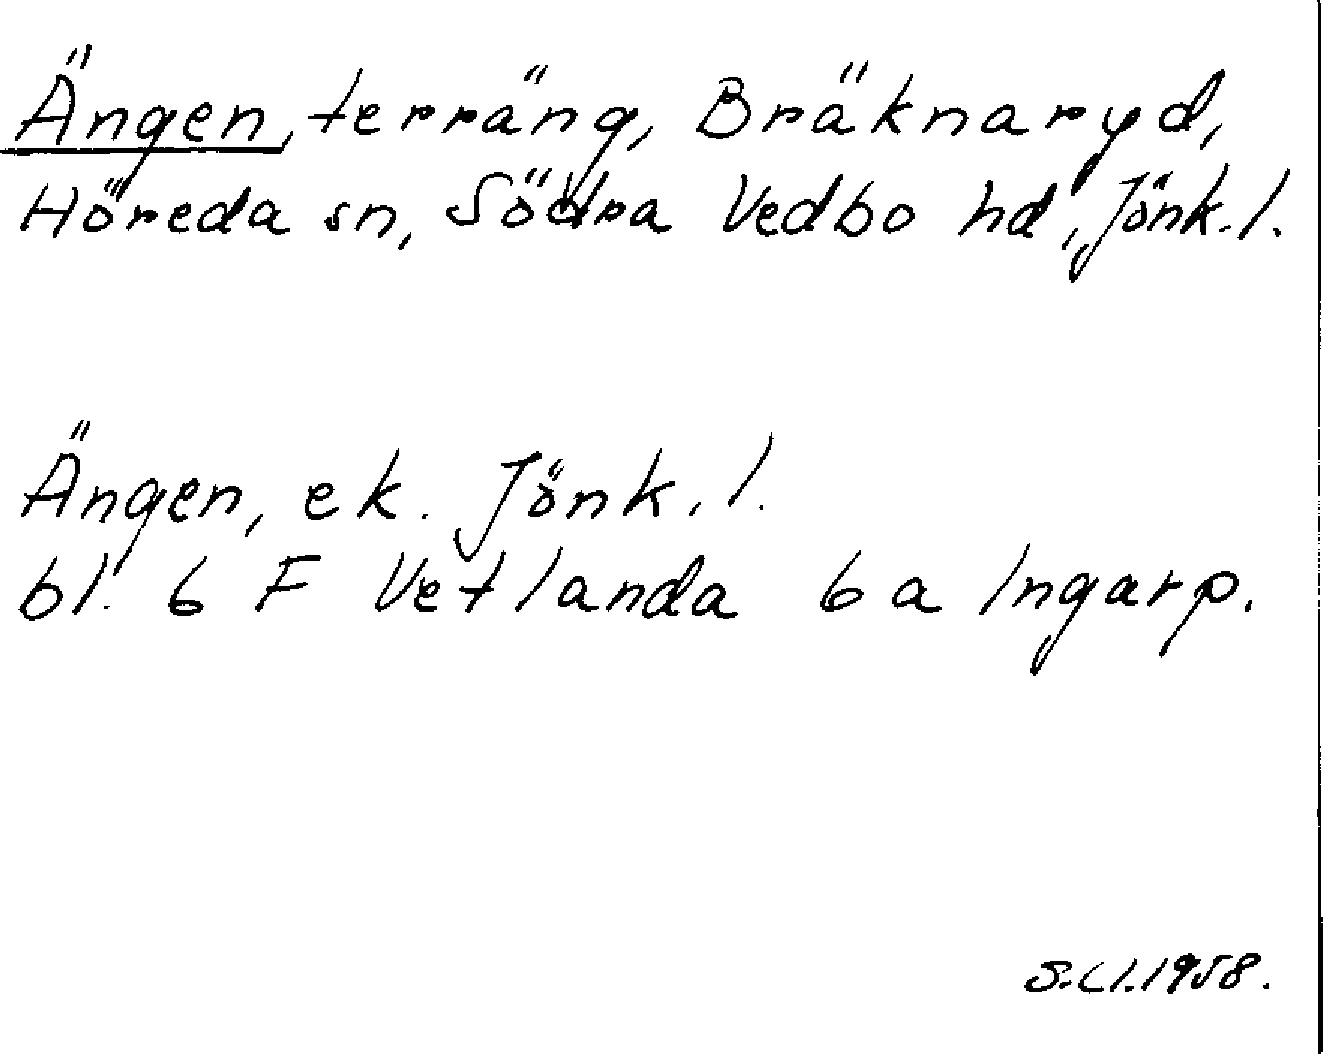 Ängen, terräng, Bräknaryd,
Höreda sn, Södra Vedbo hd, Jönk. l.
Ängen, ek. Jönk. l.
bl. 6 F Vetlanda 6 a Ingarp.
1958.